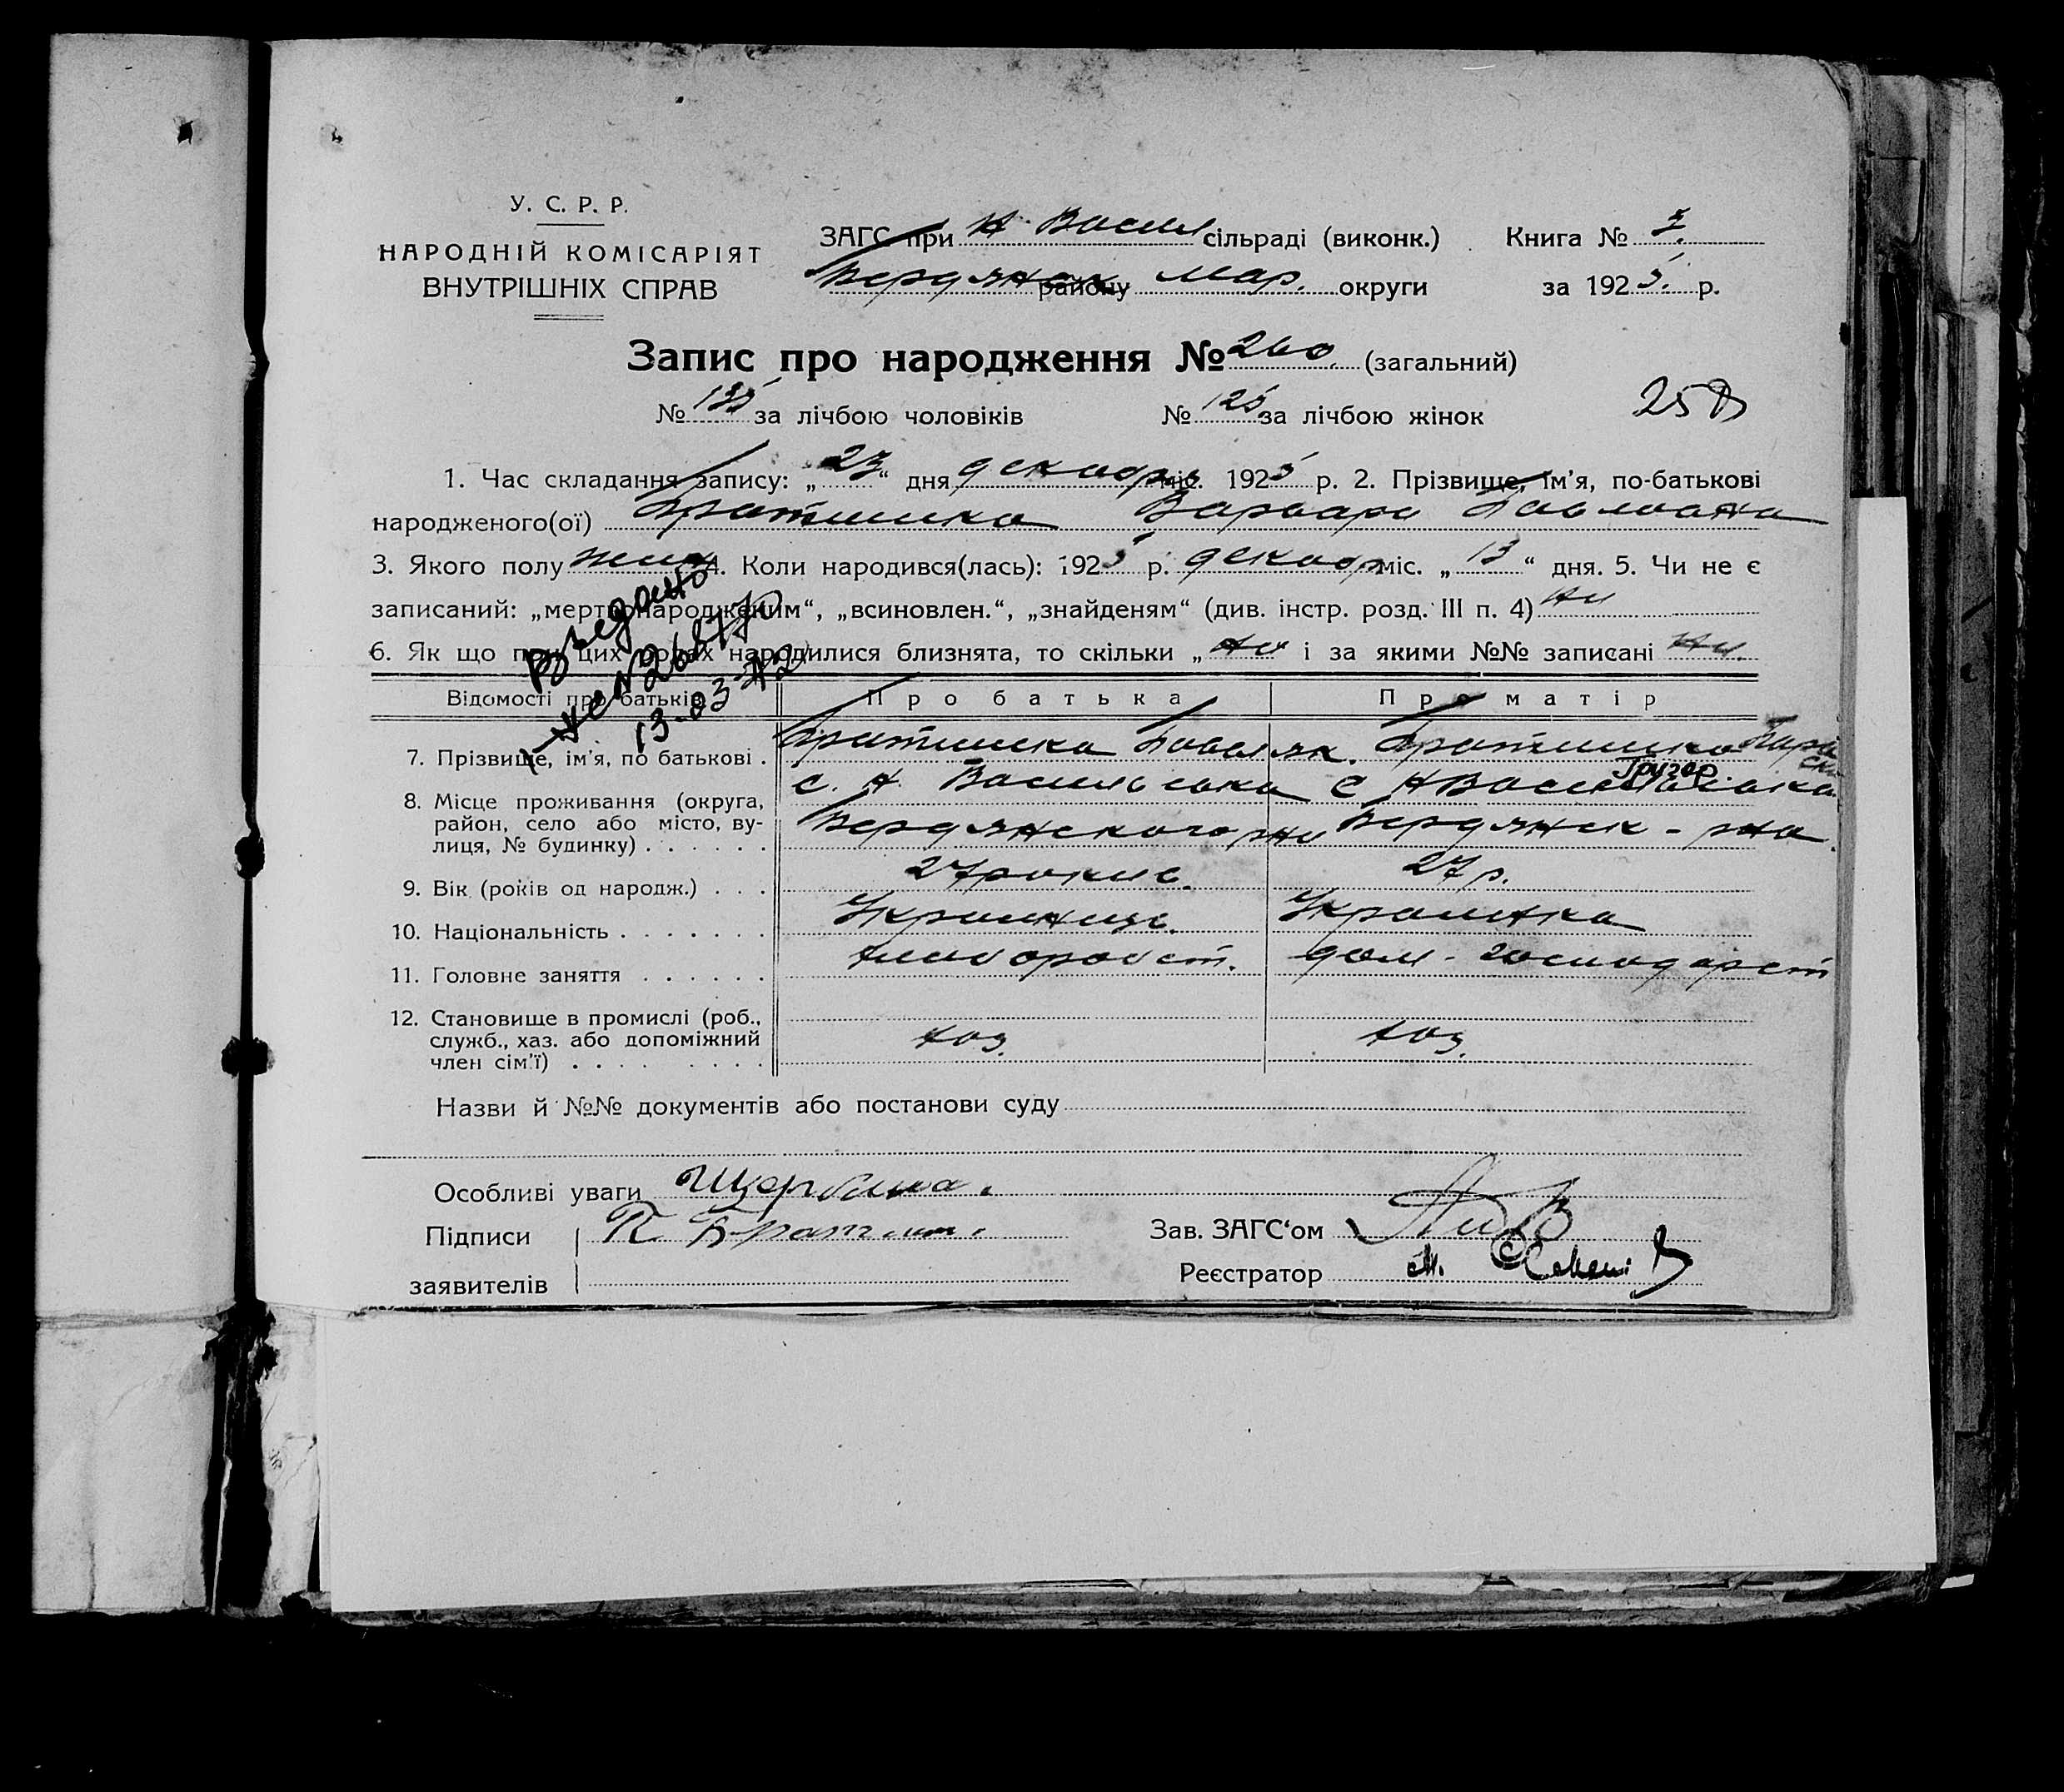 У. С. Р. Р.
НАРОДНІЙ КОМІСАРІЯТ
ВНУТРІШНІХ СПРАВ
ЗАГС при Н Васил сільраді (виконк.) Книга № 3.
Бердянськ району Мар. округи за 1925. р.
Запис про народження № 260 (загальний)
№ 135 за лічбою чоловіків № 125 за лічбою жінок
1. Час складання запису: „23“ дня декабря міс. 1925 р. 2. Прізвище, ім’я, по-батькові
народженого(ої) Братишка Варвара Павловна
3. Якого полу жин 4. Коли народився(лась): 1925 р. декабр міс. „13“ дня. 5. Чи не є
записаний: „мертвонародженим“, „всиновлен.“, „знайденям“ (див. інстр. розд. III п. 4) ни
6. Як що при цих родах народилися близнята, то скільки „ни і за якими №№ записані ни.
13-03-42
Відомості про батьків Про батька Про матір
7. Прізвище, ім’я, по батькові . Братишка Павел як. Братишка Параски
Григор.
8. Місце проживання (округа, район, село або місто, ву-
лиця, № будинку) . . . . . . с. Н Васильевка С Н Васильевка
Бердянского рни Бердянск - рна.
9. Вік (років од народж.) . . . 27 рокив. 27 р.
10. Національність . . . . . . . Украинць. Украинка
11. Головне заняття . . . . . . хлиборобст. дом - господарст
12. Становище в промислі (роб.,
служб., хаз. або допоміжний
член сім’ї) . . . . . . . . хоз. хоз.
Назви й №№ документів або постанови суду
Особливі уваги Щербина.
Підписи П. Братиш.
Зав. ЗАГС‘ом
заявителів
Реєстратор М.